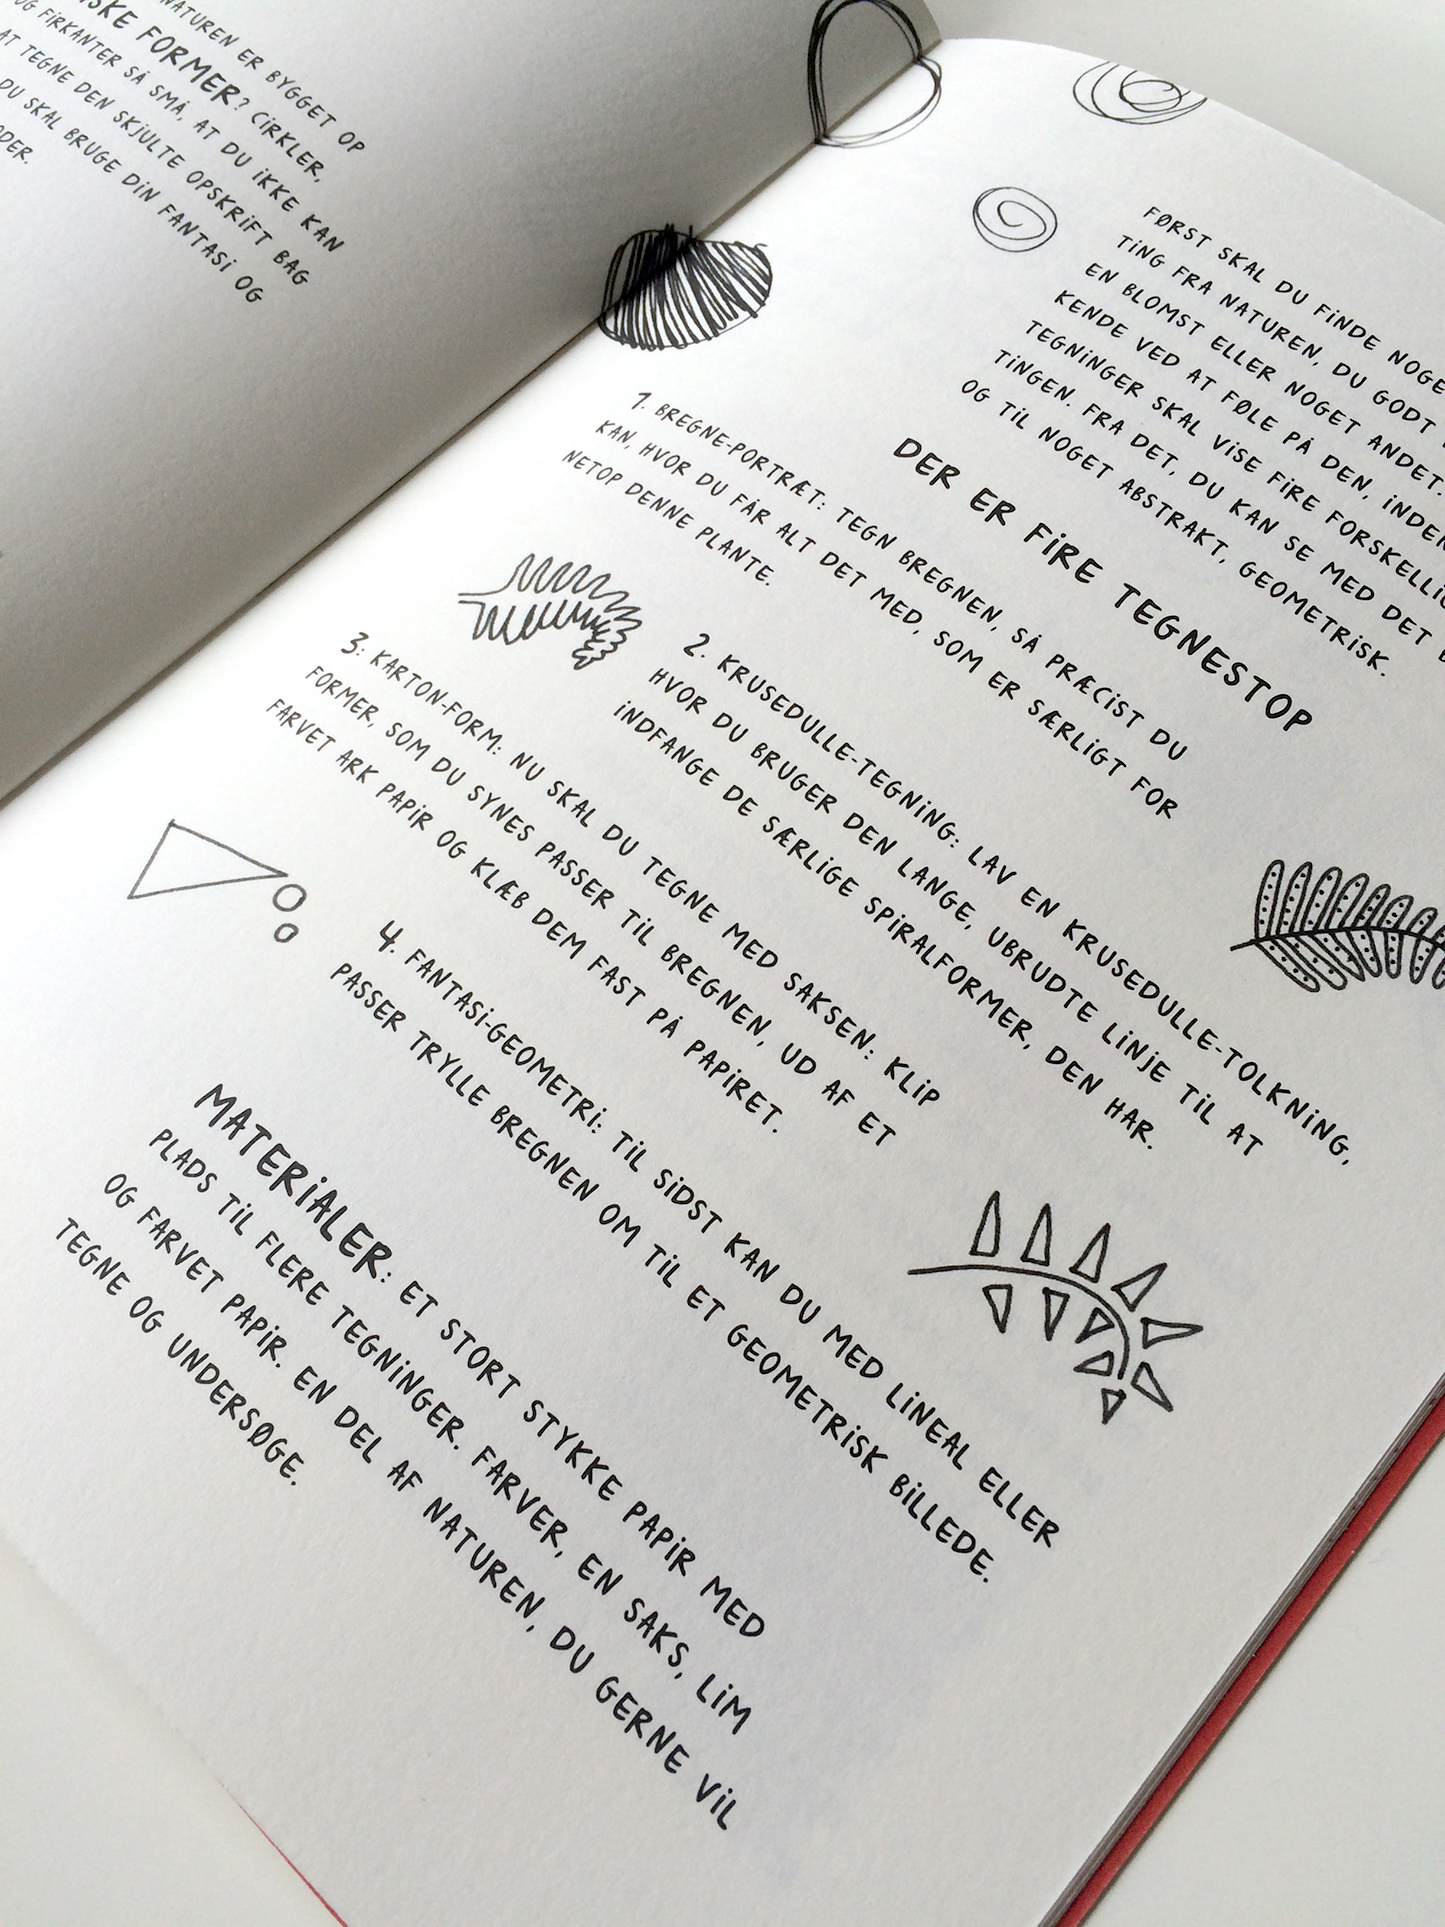 NATUREN ER BYGGET OP
SKE FORMER? CIRKLER,
OG FIRKANTER SÅ SMÅ, AT DU IKKE KAN
AT TEGNE DEN SKJULTE OPSKRIFT BAG
DU SKAL BRUGE DIN FANTASI OG
DER.
FØRST SKAL DU FINDE NOGE
TING FRA NATUREN, DU GODT
EN BLOMST ELLER NOGET ANDET.
KENDE VED AT FØLE PÅ DEN, INDEN
TEGNINGER SKAL VISE FIRE FORSKELLIG
TINGEN. FRA DET, DU KAN SE MED DET
OG TIL NOGET ABSTRAKT, GEOMETRISK.
DER ER FIRE TEGNESTOP
1. BREGNE-PORTRÆT: TEGN BREGNEN, SÅ PRÆCIST DU
KAN, HVOR DU FÅR ALT DET MED, SOM ER SÆRLIGT FOR
NETOP DENNE PLANTE.
2. KRUSEDULLE-TEGNING: LAV EN KRUSEDULLE-TOLKNING,
HVOR DU BRUGER DEN LANGE, UBRUDTE LINJE TIL AT
INDFANGE DE SÆRLIGE SPIRALFORMER, DEN HAR.
3: KARTON-FORM: NU SKAL DU TEGNE MED SAKSEN: KLIP
FORMER, SOM DU SYNES PASSER TIL BREGNEN, UD AF ET
FARVET ARK PAPIR OG KLÆB DEM FAST PÅ PAPIRET.
4. FANTASI-GEOMETRI: TIL SIDST KAN DU MED LINEAL ELLER
PASSER TRYLLE BREGNEN OM TIL ET GEOMETRISK BILLEDE.
MATERIALER: ET STORT STYKKE PAPIR MED
PLADS TIL FLERE TEGNINGER. FARVER, EN SAKS, LIM
OG FARVET PAPIR. EN DEL AF NATUREN, DU GERNE VIL
TEGNE OG UNDERSØGE.